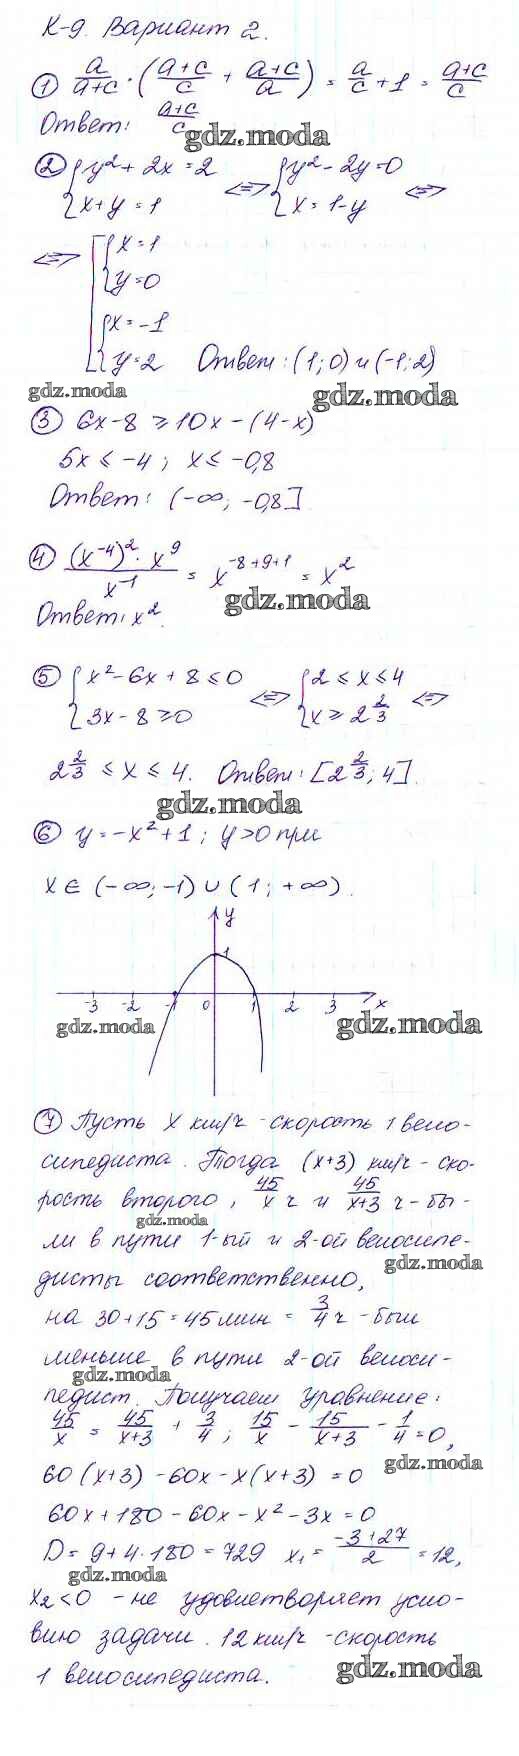 К-9. Вариант 2.
① a/(a+c) · ((a+c)/c + (a+c)/a) = a/c + 1 = (a+c)/c
Ответ: (a+c)/c
gdz.moda
② {y² + 2x = 2 {y² - 2y = 0
{x + y = 1 <=> {x = 1 - y <=>
<=> [{x = 1
{y = 0
{x = -1
{y = 2 Ответ: (1; 0) и (-1; 2)
gdz.moda gdz.moda
③ 6x - 8 ≥ 10x - (4 - x)
5x ≤ -4; x ≤ -0,8
Ответ: (-∞; -0,8]
④ ((x⁻⁴)² · x⁹)/x⁻¹ = x⁻⁸⁺⁹⁺¹ = x²
gdz.moda
Ответ: x².
⑤ {x² - 6x + 8 ≤ 0 {2 ≤ x ≤ 4
{3x - 8 ≥ 0 <=> {x ≥ 2 2/3 <=>
2 2/3 ≤ x ≤ 4. Ответ: [2 2/3; 4].
gdz.moda
⑥ y = -x² + 1; y > 0 при
x ∈ (-∞; -1) ∪ (1; +∞).
y
1
-3 -2 -1 0 1 2 3 x
gdz.moda gdz.moda
⑦ Пусть x км/ч - скорость 1 вело-
сипедиста. Тогда (x+3) км/ч - ско-
рость второго, 45/x ч и 45/(x+3) ч - бы-
gdz.moda
ли в пути 1-ый и 2-ой велосипе-
gdz.moda
дисты соответственно,
на 30 + 15 = 45 мин = 3/4 ч - был
меньше в пути 2-ой велоси-
gdz.moda
педист. Получаем уравнение:
45/x = 45/(x+3) + 3/4; 15/x - 15/(x+3) - 1/4 = 0,
gdz.moda
60(x+3) - 60x - x(x+3) = 0
60x + 180 - 60x - x² - 3x = 0
D = 9 + 4·180 = 729 x₁ = (-3+27)/2 = 12,
gdz.moda
x₂ < 0 - не удовлетворяет усло-
вию задачи. 12 км/ч - скорость
1 велосипедиста.
gdz.moda